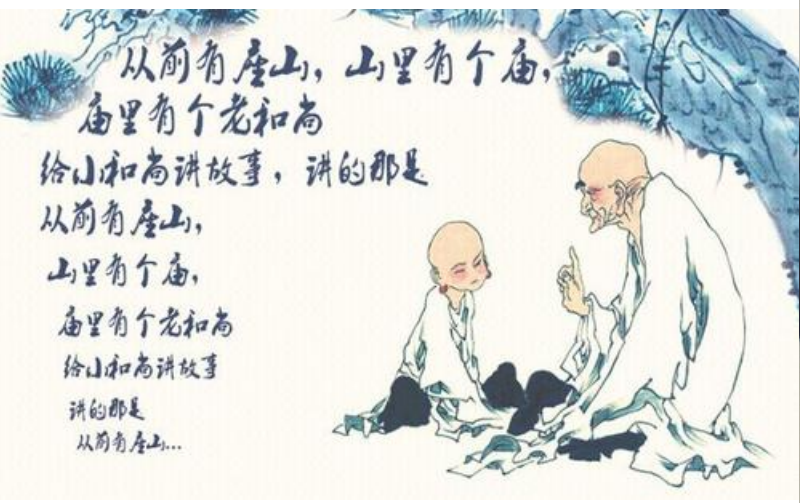 从前有座山，山里有个庙，
庙里有个老和尚
给小和尚讲故事，讲的那是
从前有座山，
山里有个庙，
庙里有个老和尚
给小和尚讲故事
讲的那是
从前有座山...